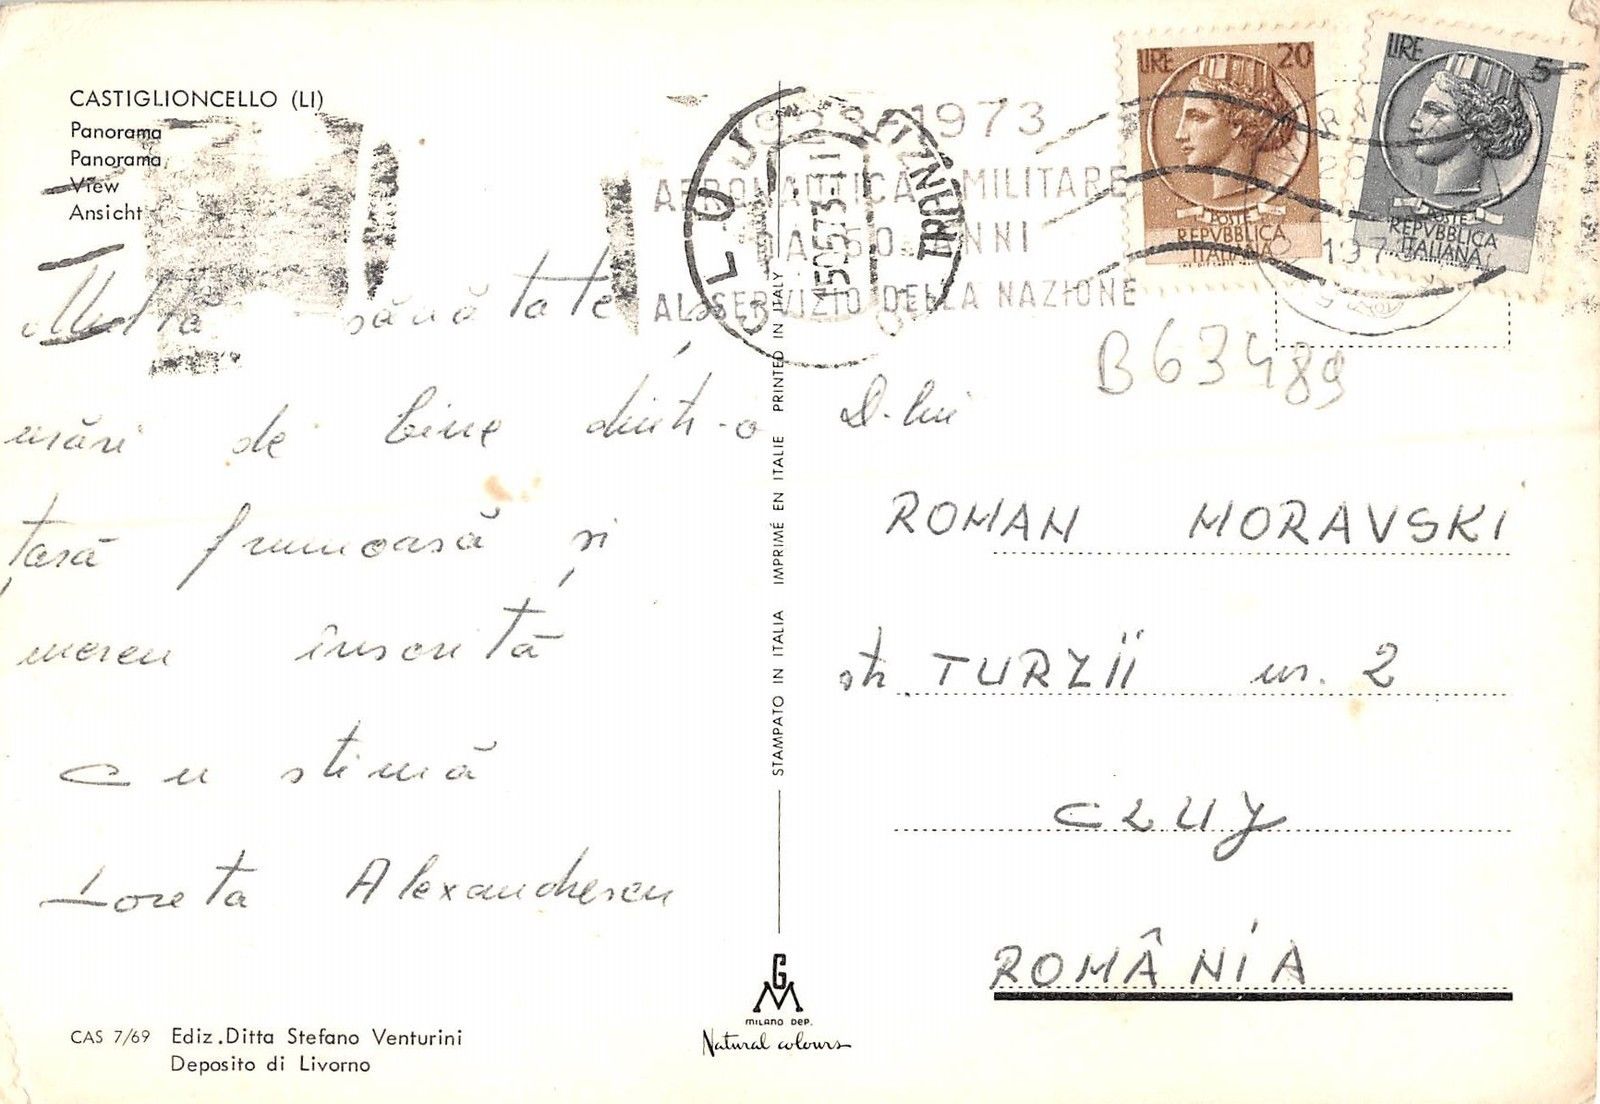 CASTIGLIONCELLO (LI)
Panorama
Panorama
View
Ansicht
Multă sănătate și
urări de bine dintr-o
țară frumoasă și
mereu însorită
Cu stimă
Loreta Alexandrescu
CAS 7/69 Ediz. Ditta Stefano Venturini
Deposito di Livorno
STAMPATO IN ITALIA IMPRIMÉ EN ITALIE PRINTED IN ITALY
G M
MILANO DEP.
Natural colours
1923-1973
AERONAUTICA MILITARE
DA 50 ANNI
AL SERVIZIO DELLA NAZIONE
CLUJ
TRANZIT
15.05.73-11
LIRE 20
POSTE
REPVBBLICA
ITALIANA
LIRE 5
POSTE
REPVBBLICA
ITALIANA
1973
B63489
D-lui
ROMAN MORAVSKI
str. TURZII nr. 2
CLUJ
ROMÂNIA